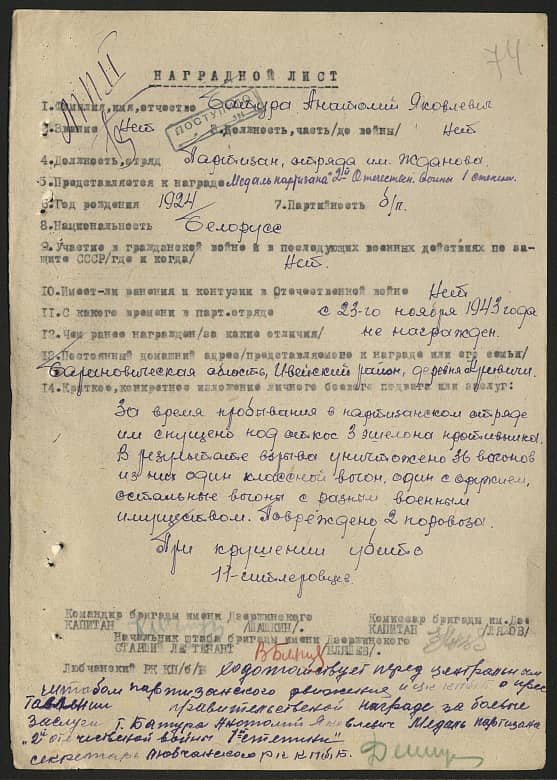 74
НАГРАДНОЙ ЛИСТ
1. Фамилия, имя, отчество Батура Анатолий Яковлевич
2. Звание Нет 3. Должность, часть/до войны/ Нет
4. Должность, отряд Партизан, отряда им. Жданова.
5. Представляется к награде Медаль партизана "2й Отечествен. войны 1 степени.
6. Год рождения 1924 7. Партийность б/п.
8. Национальность Белорусс
9. Участие в гражданской войне и в последующих военных действиях по за-
щите СССР/где и когда/ Нет.
10. Имеет-ли ранения и контузии в Отечественной войне Нет
11. С какого времени в парт.отряде с 23-го ноября 1943 года
12. Чем ранее награжден/за какие отличия/ не награжден.
13. Постоянный домашний адрес/представляемого к награде или его семьи/
Барановическая область, Ивейский район, деревня
14. Краткое, конкретное изложение личного боевого подвига или заслуг:
За время пробывания в партизанском отряде
им спущено под откос 3 эшелона противника.
В результате взрыва уничтожено 36 вогонов
из них один классной вогон, один с оружием,
остальные вогоны с разным военным
имуществом. Повреждено 2 поровоза.
При крушении убито
11-гитлеровцев.
Командир бригады имени Дзержинского
КАПИТАН /ШАШКИН/.
Комиссар бригады им. Дзе
КАПИТАН /ЛЯХОВ/
Начальник штаба бригады имени Дзержинского
СТАРШИЙ ЛЕЙТЕНАНТ
Любчанский РК КП/б/Б ходотайствует перед центральным
штабом партизанского движения о пред
тавлении правительственной награде за боевые
заслуги т. Батура Анотолий Яковлевич Медаль партизана
"2й отечественой войны 1й степени"
секретарь Любчанского рк КП/б/Б.